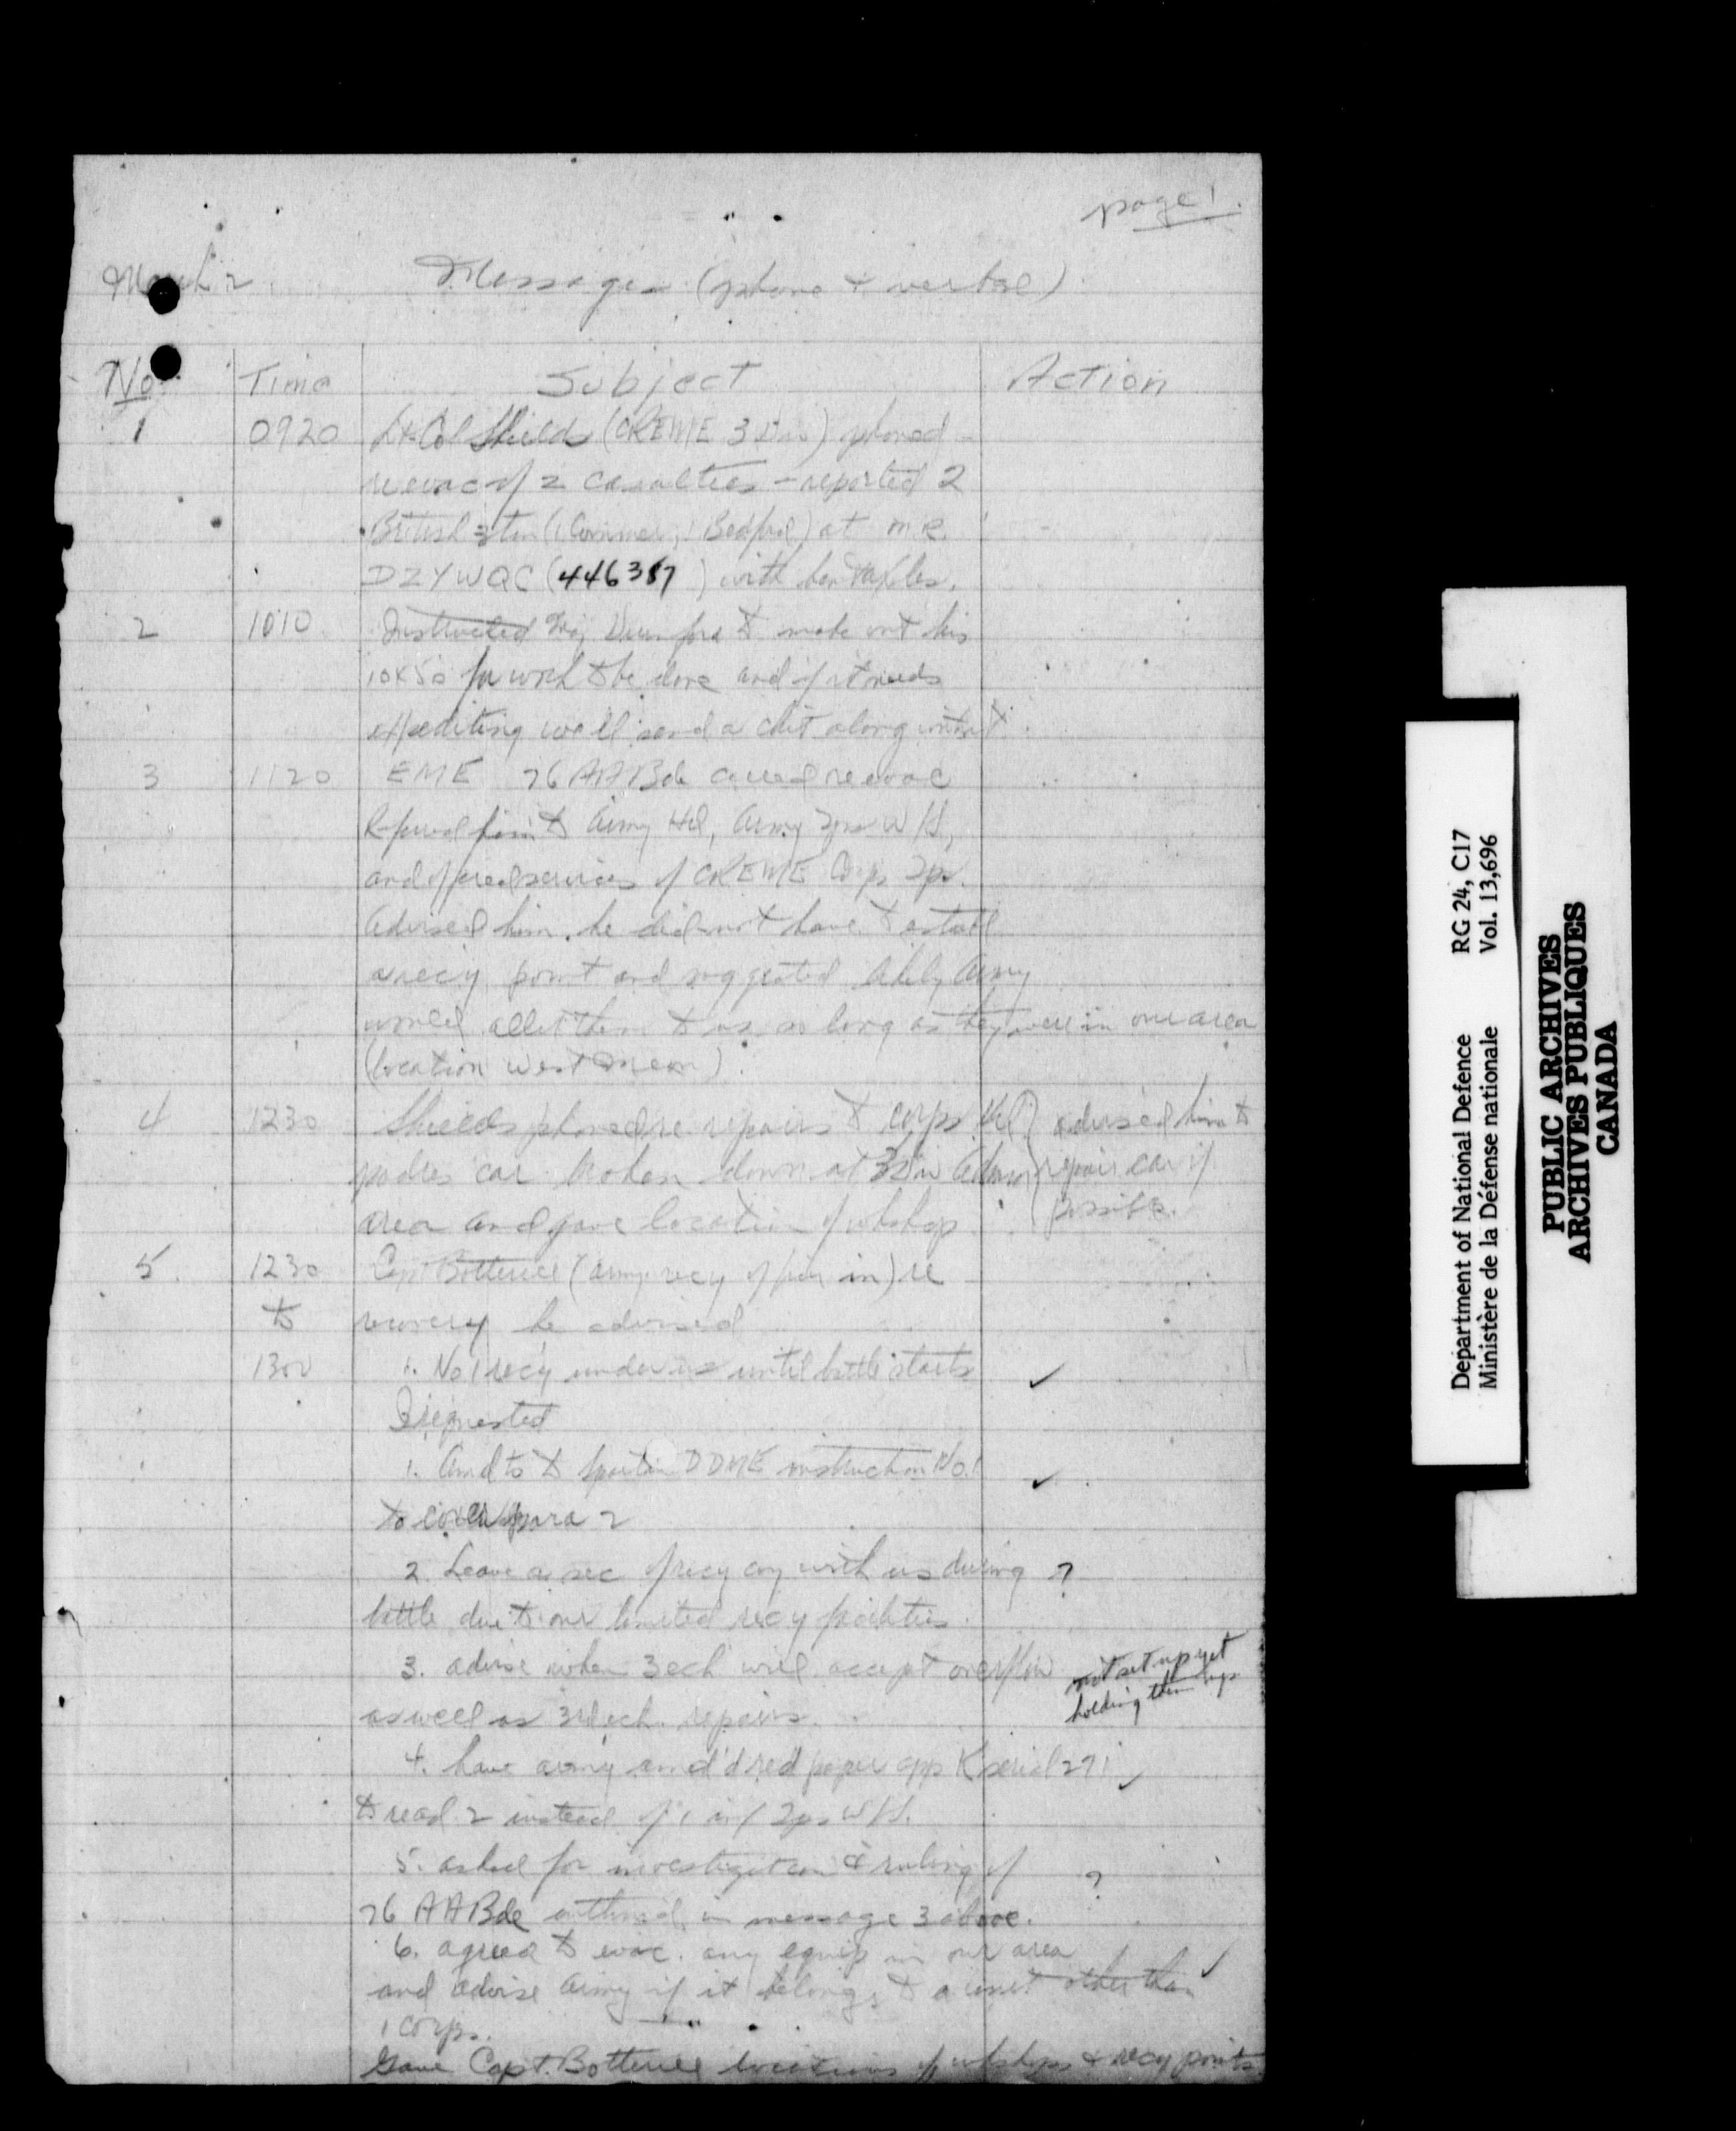 page 1.
March 2
Messages (phone & verbal)
No. Time Subject Action
1 0920 Lt Col Shields (CREME 3 Div) phoned -
re evac of 2 casualties - reported 2
British 3 ton (1 Commer, 1 Bedford) at m.r.
DZYWQC (446387) with
2 1010 Instructed Maj to make out his
for work to be done and if it needs
expediting we'll send a chit along with it.
3 1120 EME 76 AA Bde called re evac
Referred him to Army Hd, Army Tps W/S,
and offered services of CREME Corps Tps.
Advised him he did not have to establ
a recy point and suggested likely Army
would allot them to us so long as they were in our area
(location West Meon).
4 1230 Shields phoned re repairs to Corps advised him to
padres car broken down at 3 Div Admin repair car if
area and gave location of wkshop. possible.
5. 1230 Capt Botterill (army recy offr in) re
to recovery he advised
1300 1. No 1 recy under us until battle starts ✓
I requested
1. Amdts to Spartan DDME instruction No. 1 ✓
to cover para 2
2. Leave a sec of recy coy with us during ?
battle due to our limited recy facilities.
3. advise when 3 ech will accept overflow not set up yet
as well as 3rd ech. repairs. holding them up
4. have army amd'd red paper app K serial 271 ✓
to read 2 instead of 1 inf Tps W/S.
5. asked for investigation & ruling of ?
76 AA Bde outlined in message 3 above.
6. agreed to evac. any equip in our area ✓
and advise Army if it belongs to a unit other than
1 Corps.
Gave Capt. Botterill locations of wkshops & recy points.
Department of National Defence RG 24, C17
Ministère de la Défense nationale Vol. 13,696
PUBLIC ARCHIVES
ARCHIVES PUBLIQUES
CANADA